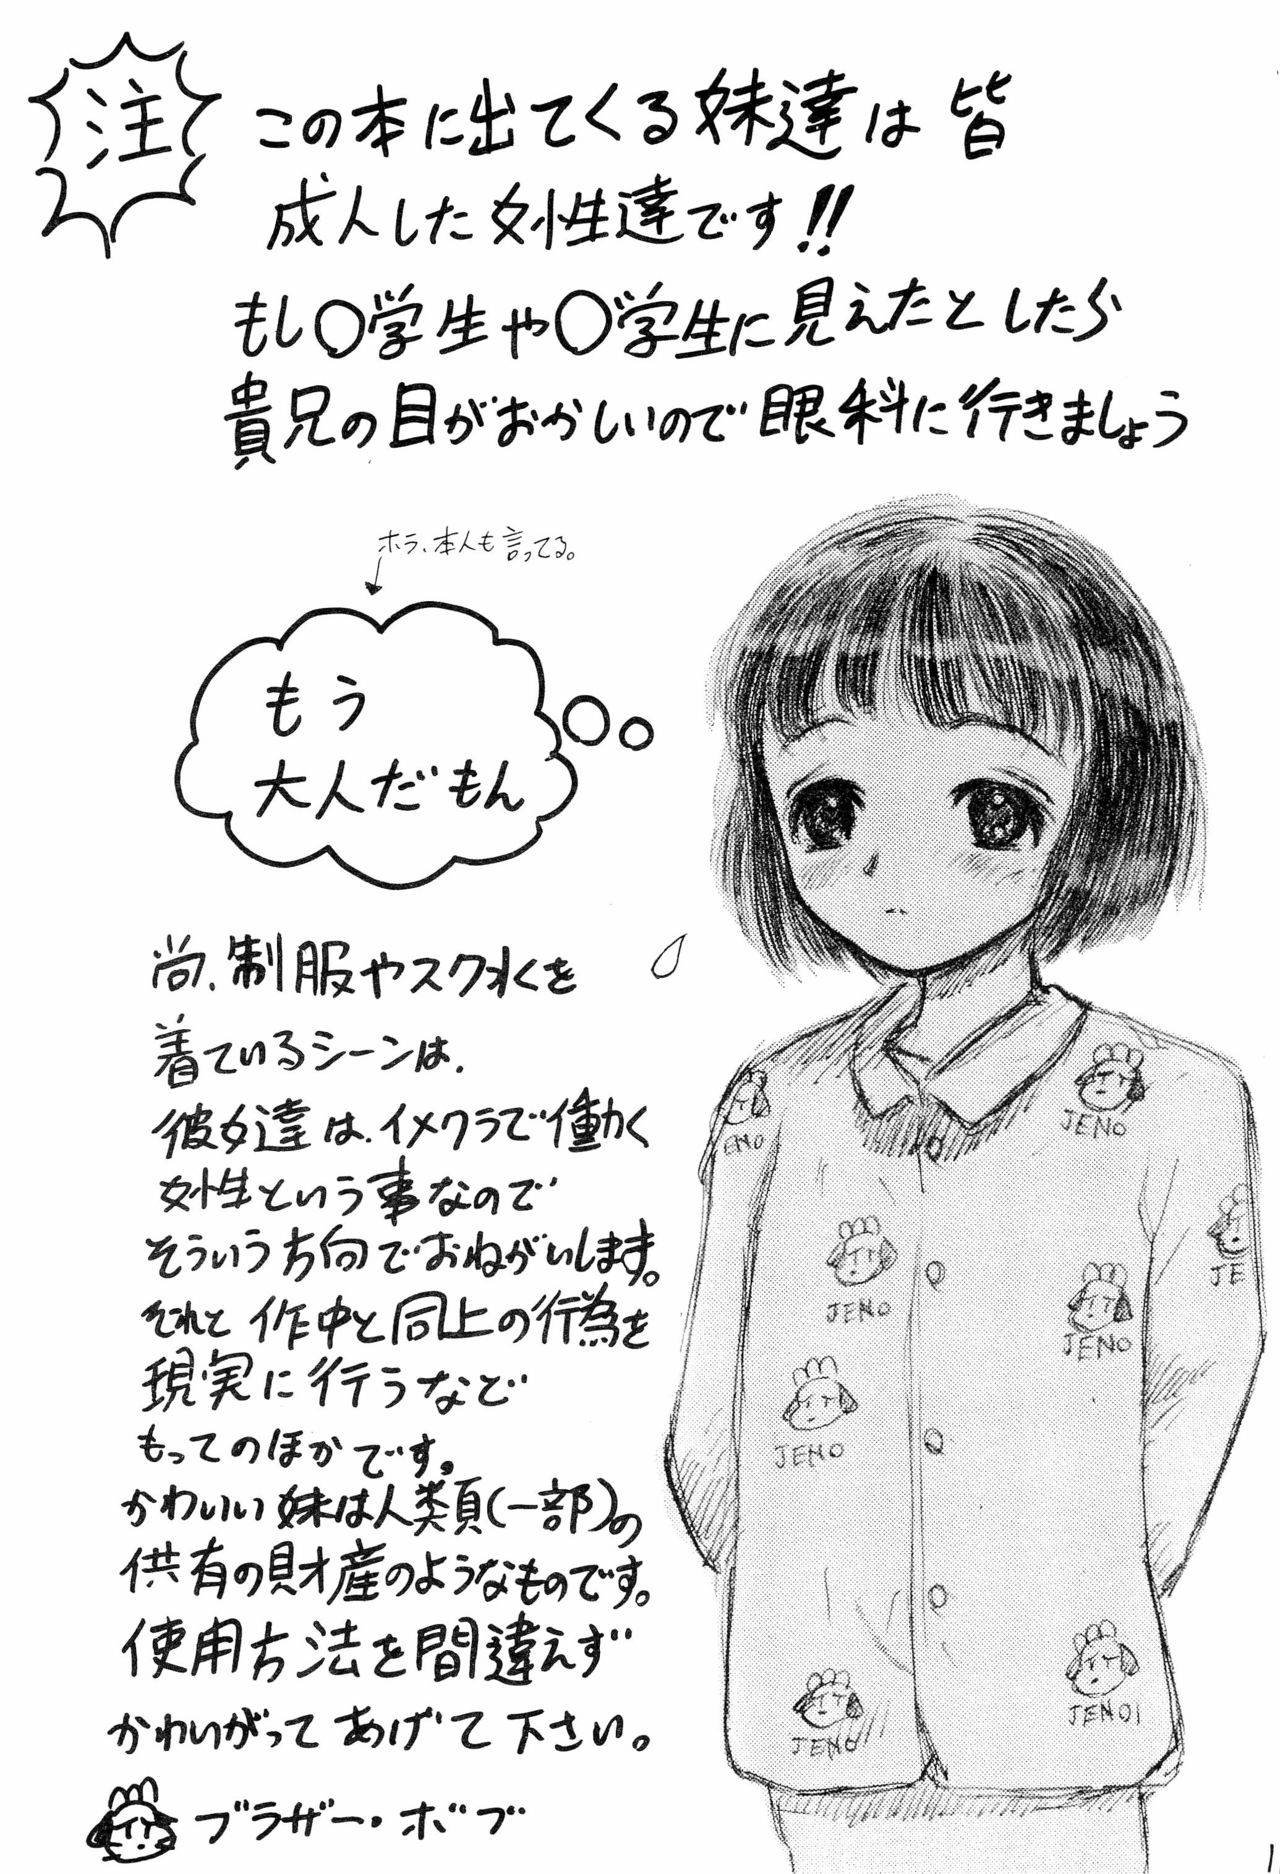 注
この本に出てくる妹達は皆
成人した女性達です!!
もし〇学生や〇学生に見えたとしたら
貴兄の目がおかしいので眼科に行きましょう
ホラ、本人も言ってる。
もう
大人だもん
尚、制服やスク水を
着ているシーンは、
彼女達は、イメクラで働く
女性という事なので
そういう方向でおねがいします。
それと作中と同上の行為を
現実に行うなど
もってのほかです。
かわいい妹は人類(一部)の
供有の財産のようなものです。
使用方法を間違えず
かわいがってあげて下さい。
ブラザー・ボブ
ENO
JENO
JE
JENO
JENO
JENO
JENO
JENO
1